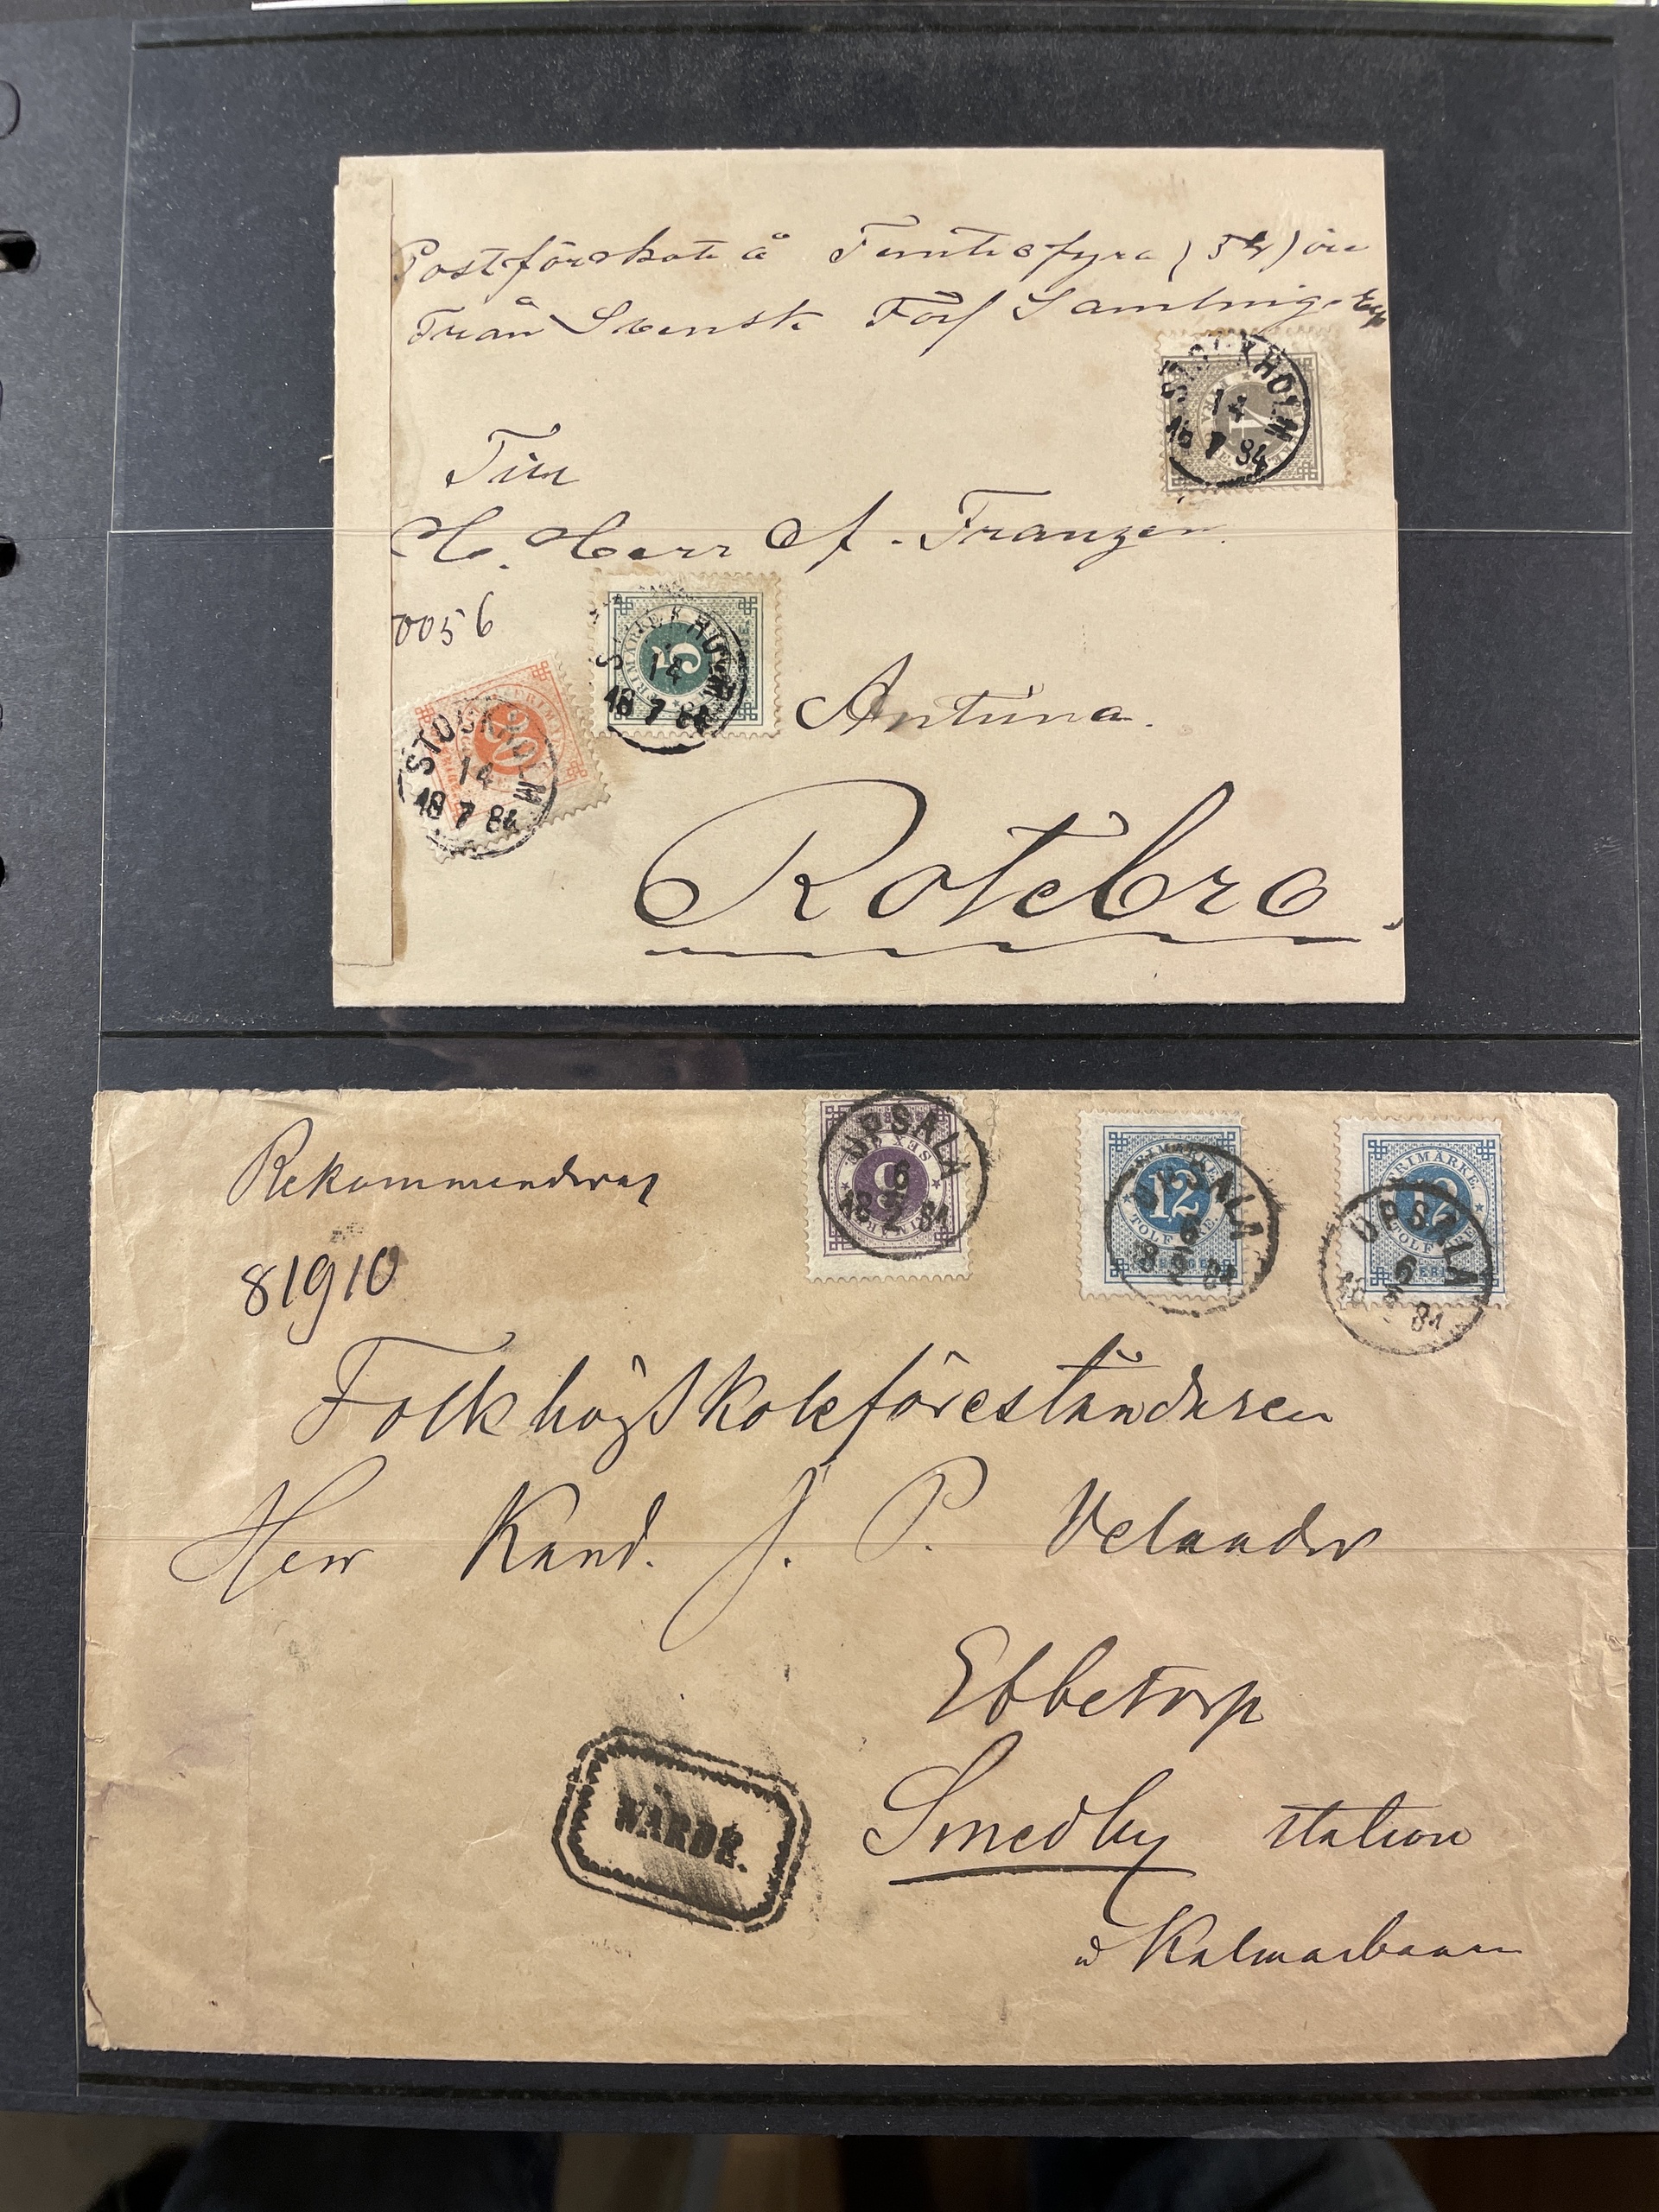 Postförskott å Femtiofyra (54) öre
Från Svensk Förf Samlings Exp
STOCKHOLM
14
18 7 84
Till
H. Herr A. Franzén
0056
5
STOCKHOLM
14
18 7 84
Antuna.
20
STOCKHOLM
14
18 7 84
Rotebro
Rekommenderas
81910
6
UPSALA
6
18 2 81
FRIMÄRKE
12
TOLF ÖRE
SVERIGE
UPSALA
6
FRIMÄRKE
12
TOLF ÖRE
UPSALA
6
81
Folkhögskoleföreståndaren
Herr Kand. J. P. Velander
Ebbetorp
Smedby station
å Kalmarbanan
WÄRDE.